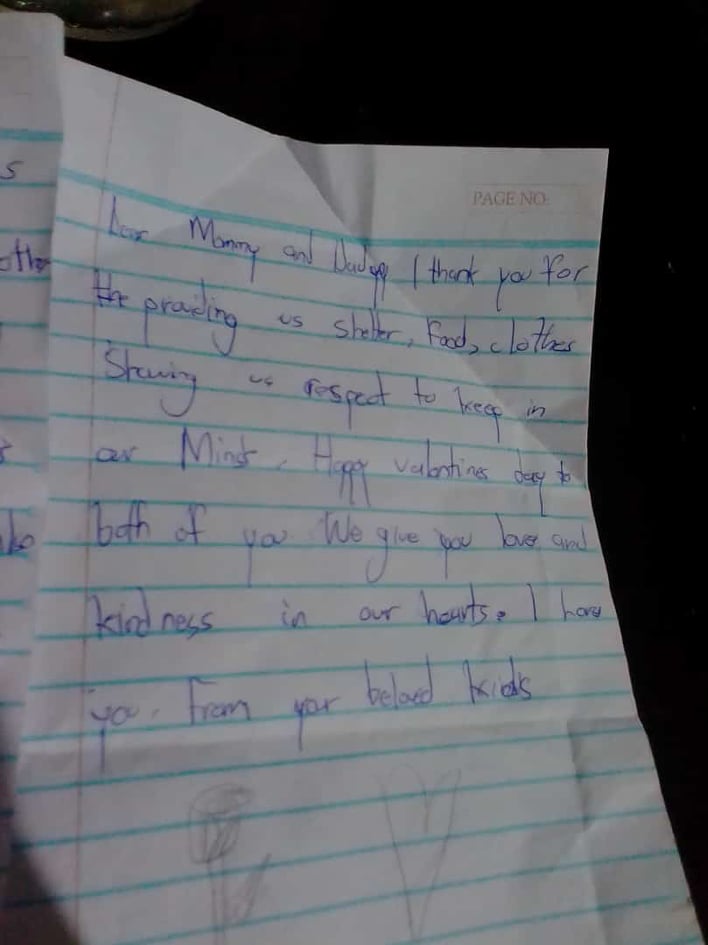 PAGE NO:
s
Dear Mommy and Daddy I thank you for
othe
the providing us shelter, Food, clothes
Showing us respect to keep in
our Minds. Happy valentines day to
both of you. We give you love and
kindness in our hearts. I
you. From your beloved kids